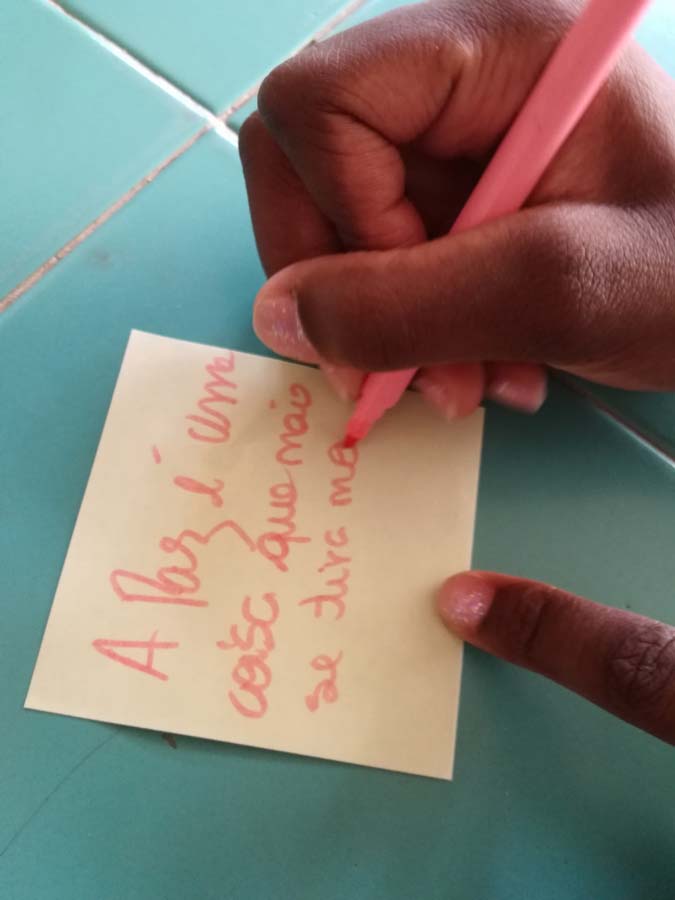 A Paz é uma
coisa que não
se tira me